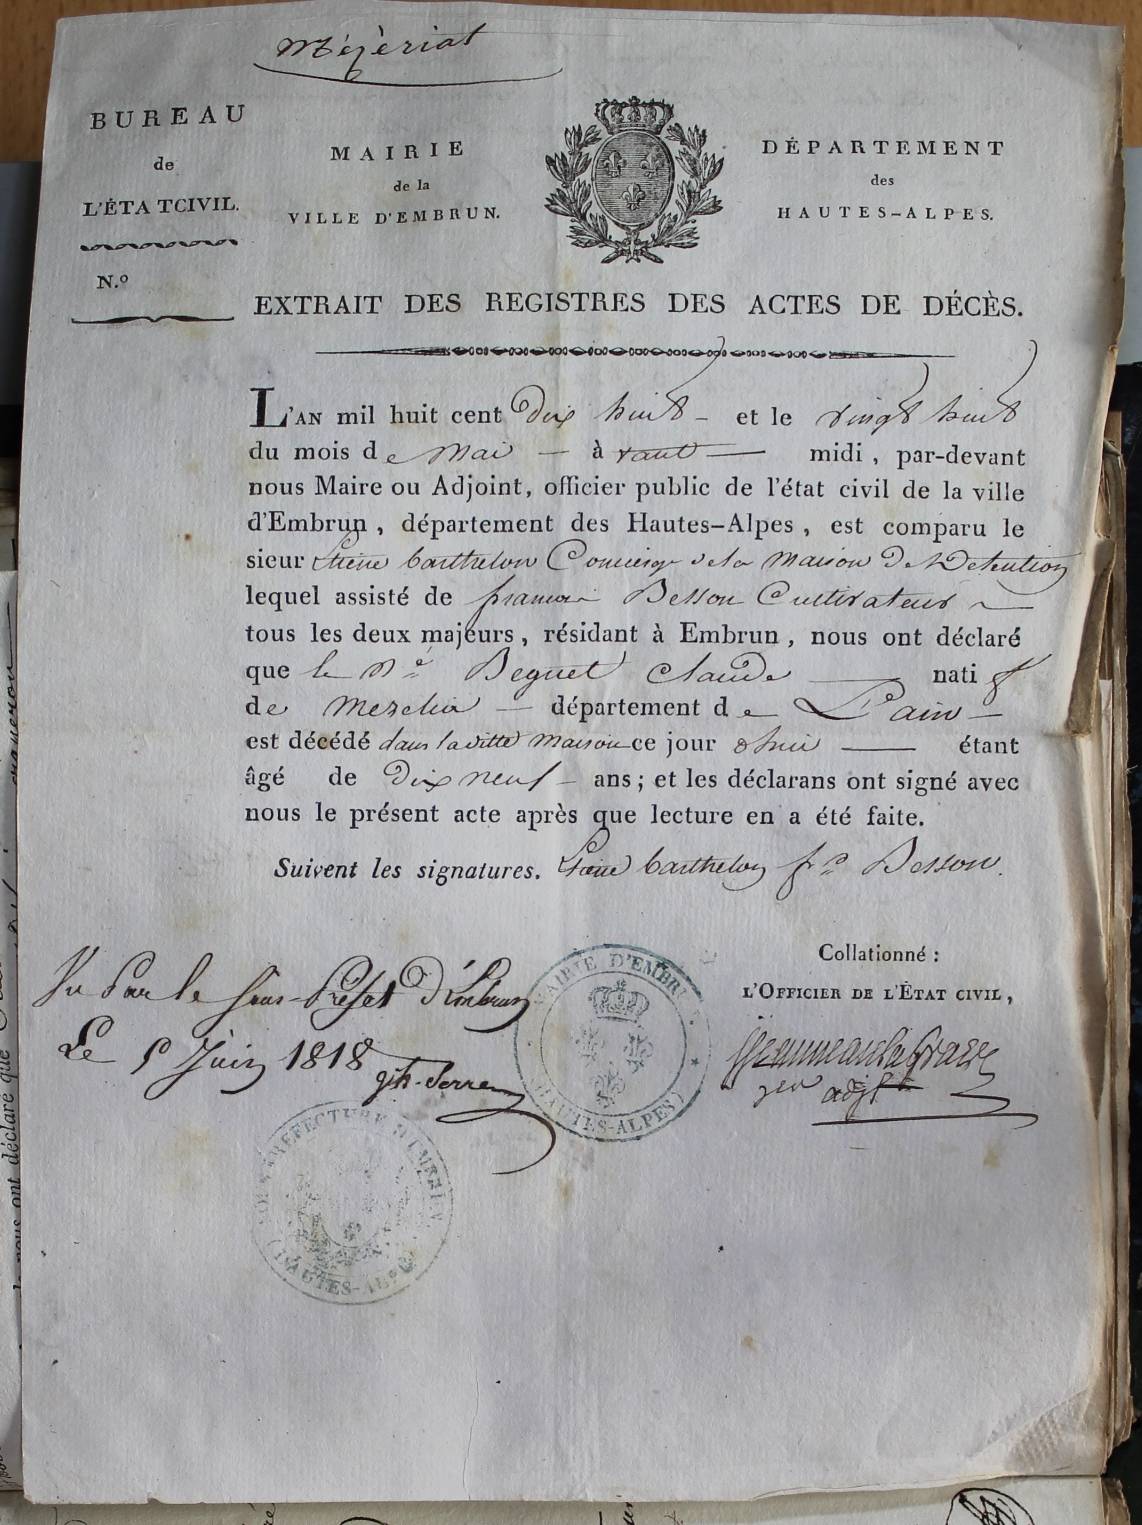 Mézèriat
BUREAU
de
L'ÉTA TCIVIL.
N.º
MAIRIE
de la
VILLE D'EMBRUN.
DÉPARTEMENT
des
HAUTES-ALPES.
EXTRAIT DES REGISTRES DES ACTES DE DÉCÈS.
L'AN mil huit cent Dix huit - et le vingt huit
du mois de Mai - à avant - midi, par-devant
nous Maire ou Adjoint, officier public de l'état civil de la ville
d'Embrun, département des Hautes-Alpes, est comparu le
sieur barthelon Concierge de la Maison De Detention
lequel assisté de françois Besson Cultivateur -
tous les deux majeurs, résidant à Embrun, nous ont déclaré
que le né Beguet Claude - natif
de - département de L'ain -
est décédé dans la ditte Maison ce jour dhui - étant
âgé de Dix neuf - ans; et les déclarans ont signé avec
nous le présent acte après que lecture en a été faite.
Suivent les signatures. barthelon fs Besson.
Vu Par le Sous-Préfet d'Embrun
Le 5 Juin 1818
MAIRIE D'EMBRUN
(HAUTES-ALPES)
Collationné :
L'OFFICIER DE L'ÉTAT CIVIL,
adjt
SOUS PREFECTURE D'EMBRUN
(HAUTES-ALPES)